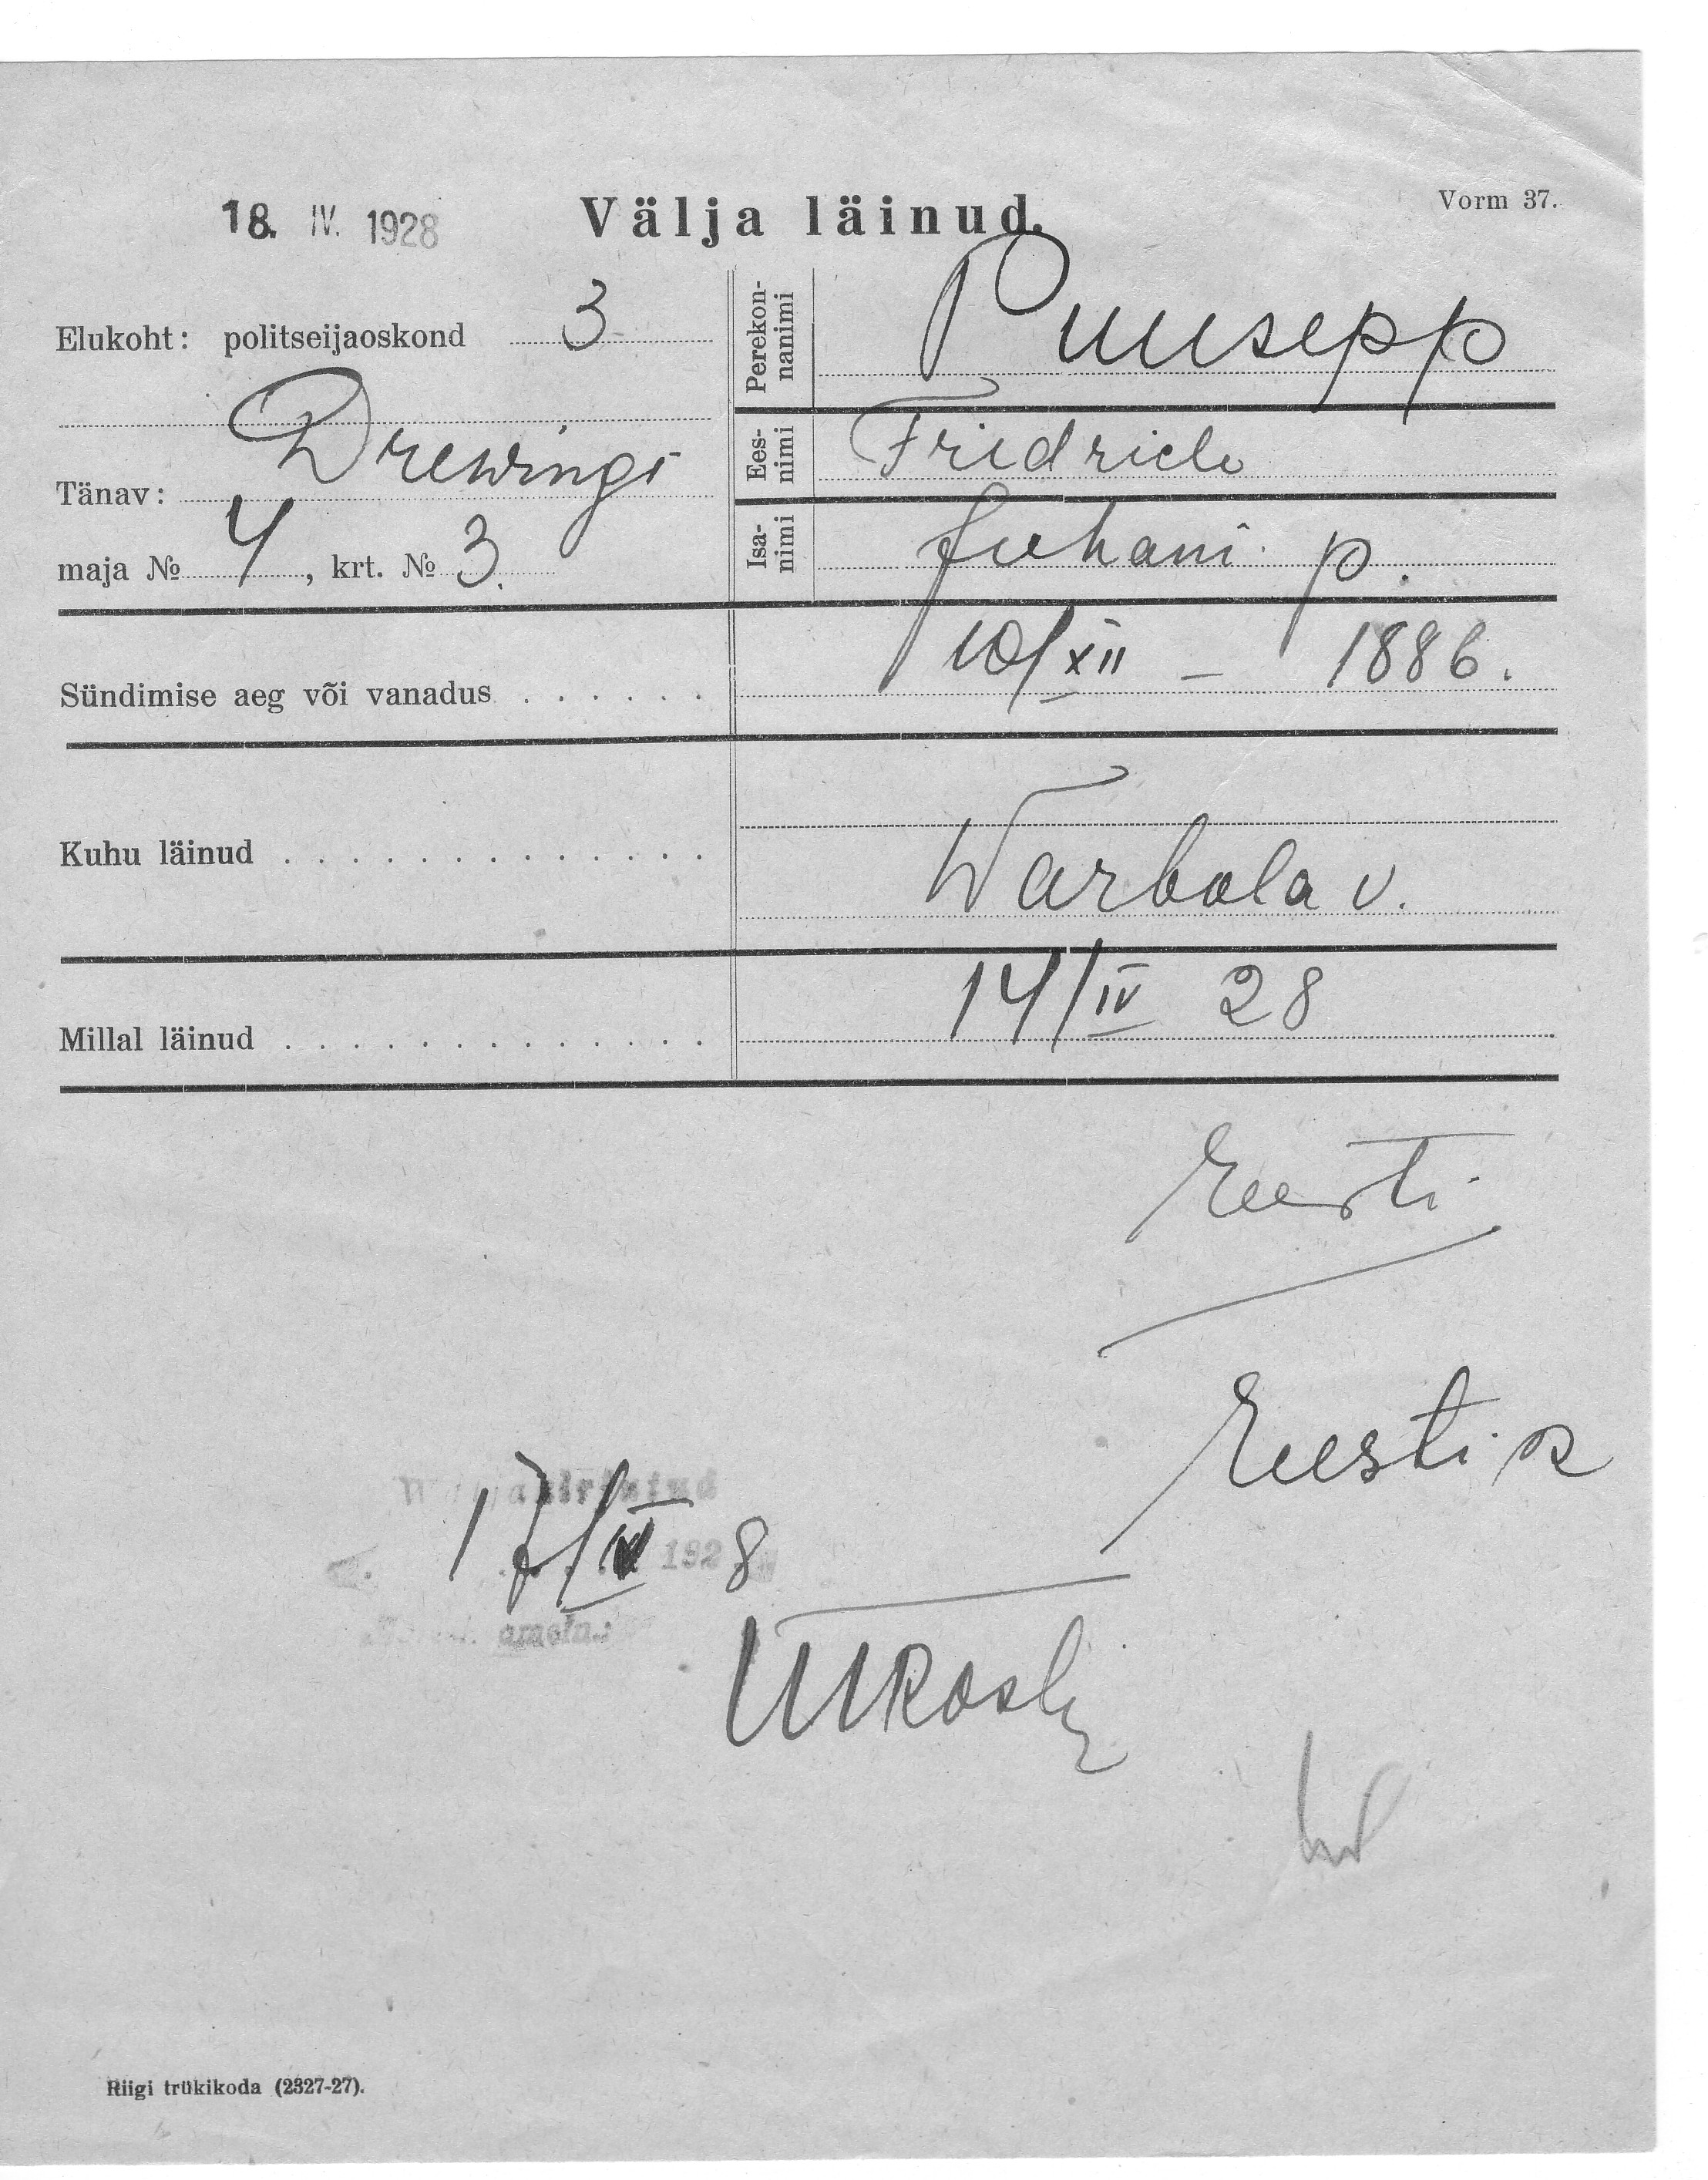 18. IV. 1928
Välja läinud.
Vorm 37.
Elukoht: politseijaoskond 3
Drewingi
Tänav:
maja № 4, krt. № 3.
Perekon-
nanimi
Puusepp
Ees-
nimi
Friedrich
Isa-
nimi
Juhani p.
Sündimise aeg või vanadus . . . . . .
10/XII – 1886.
Kuhu läinud . . . . . . . . . . . . .
Warbola v.
Millal läinud . . . . . . . . . . . . .
14/IV 28
Eesti
Eesti
17/IV 192 8
Riigi trükikoda (2327-27).